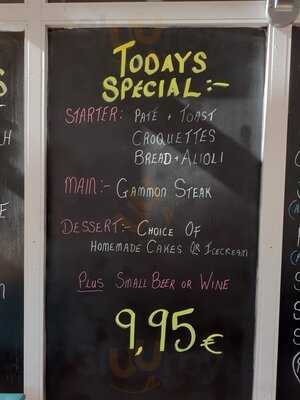 TODAYS
SPECIAL:-
STARTER: PATE + TOAST
CROQUETTES
BREAD + ALIOLI
MAIN:- GAMMON STEAK
DESSERT:- CHOICE OF
HOMEMADE CAKES OR ICECREAM
PLUS SMALL BEER OR WINE
9,95€